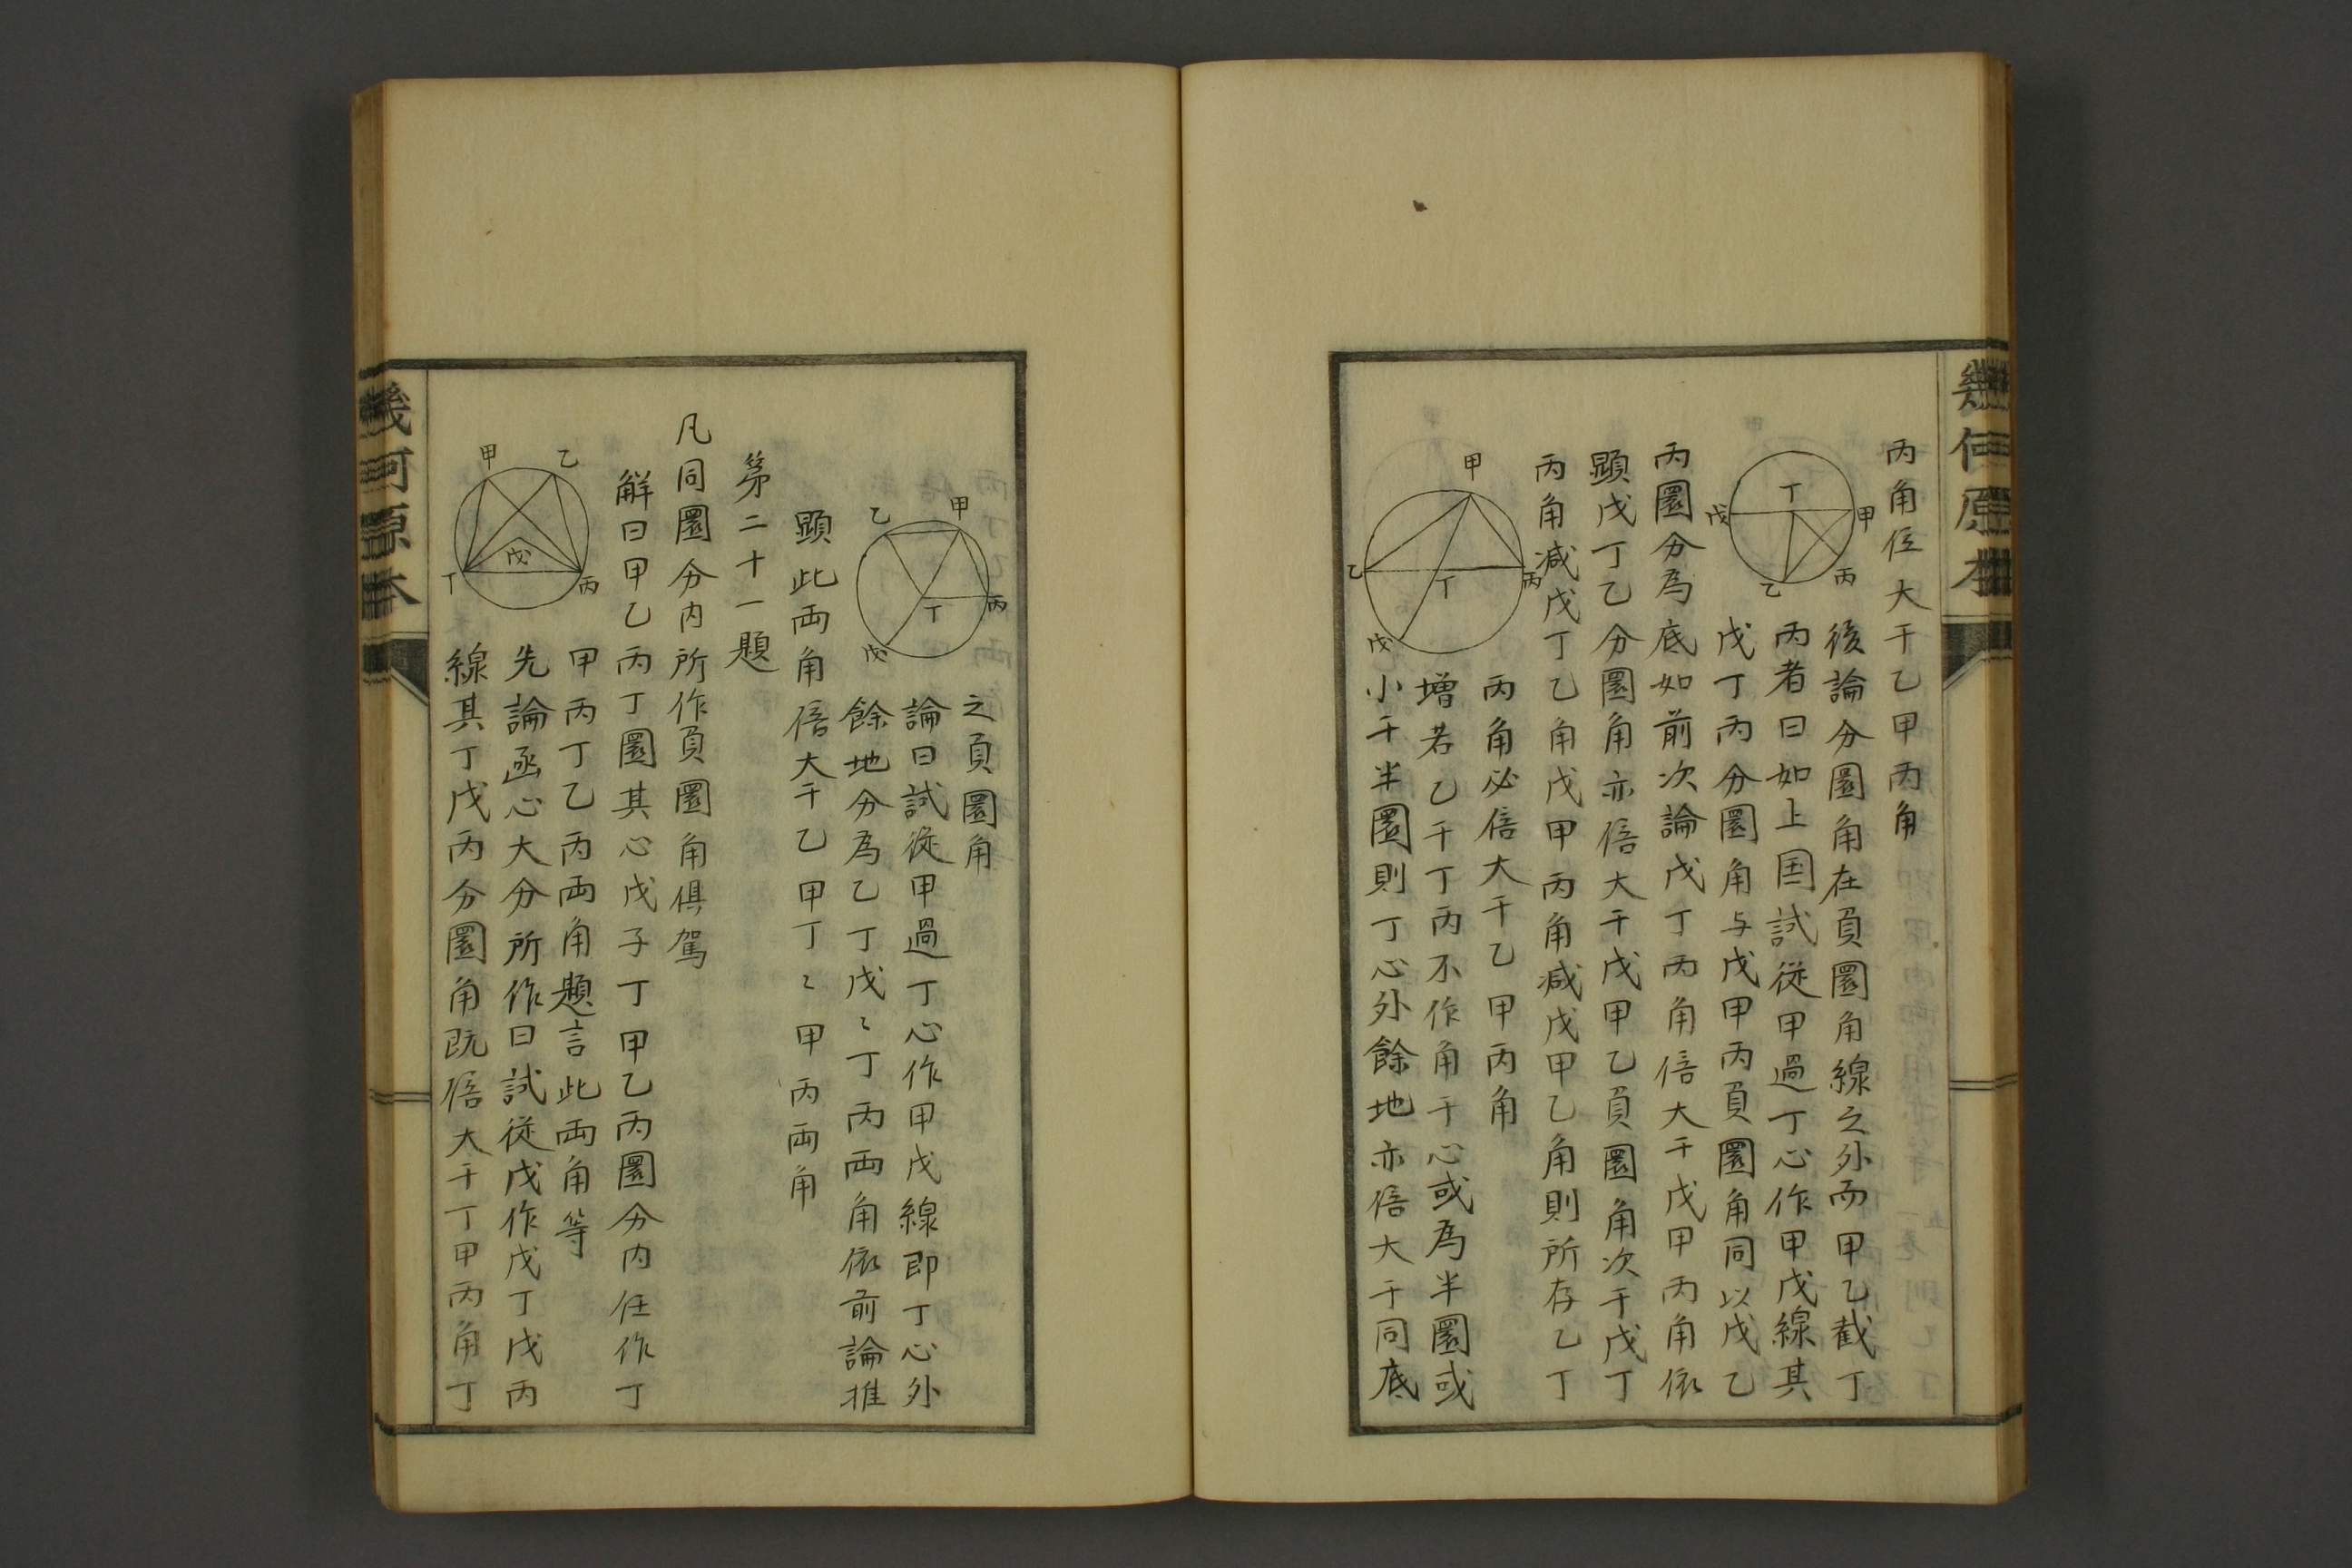 幾何原本
丙角倍大于乙甲丙角
後論分圜角在負圜角線之外而甲乙截丁
丙者曰如上圖試從甲過丁心作甲戊線其
戊丁丙分圜角与戊甲丙負圜角同以戊乙
丙圜分為底如前次論戊丁丙角倍大于戊甲丙角依
顕戊丁乙分圜角亦倍大于戊甲乙負圜角次于戊丁
丙角减戊丁乙角戊甲丙角减戊甲乙角則所存乙丁
丙角必倍大于乙甲丙角
增若乙于丁丙不作角于心或為半圜或
小于半圜則丁心外餘地亦倍大于同底
甲
丁
戊
甲
乙
丙
甲
乙
丁
丙
戊
之負圜角
論曰試從甲過丁心作甲戊線即丁心外
餘地分為乙丁戊〻丁丙两角依前論推
顕此两角倍大于乙甲丁〻甲丙两角
第二十一題
凡同圜分内所作負圜角俱等
解曰甲乙丙丁圜其心戊子丁甲乙丙圜分内任作丁
甲丙丁乙丙两角題言此两角等
先論函心大分所作曰試從戊作戊丁戊丙
線其丁戊丙分圜角既倍大于丁甲丙角丁
乙
甲
丙
丁
戊
甲
乙
戊
丁
丙
幾何原本